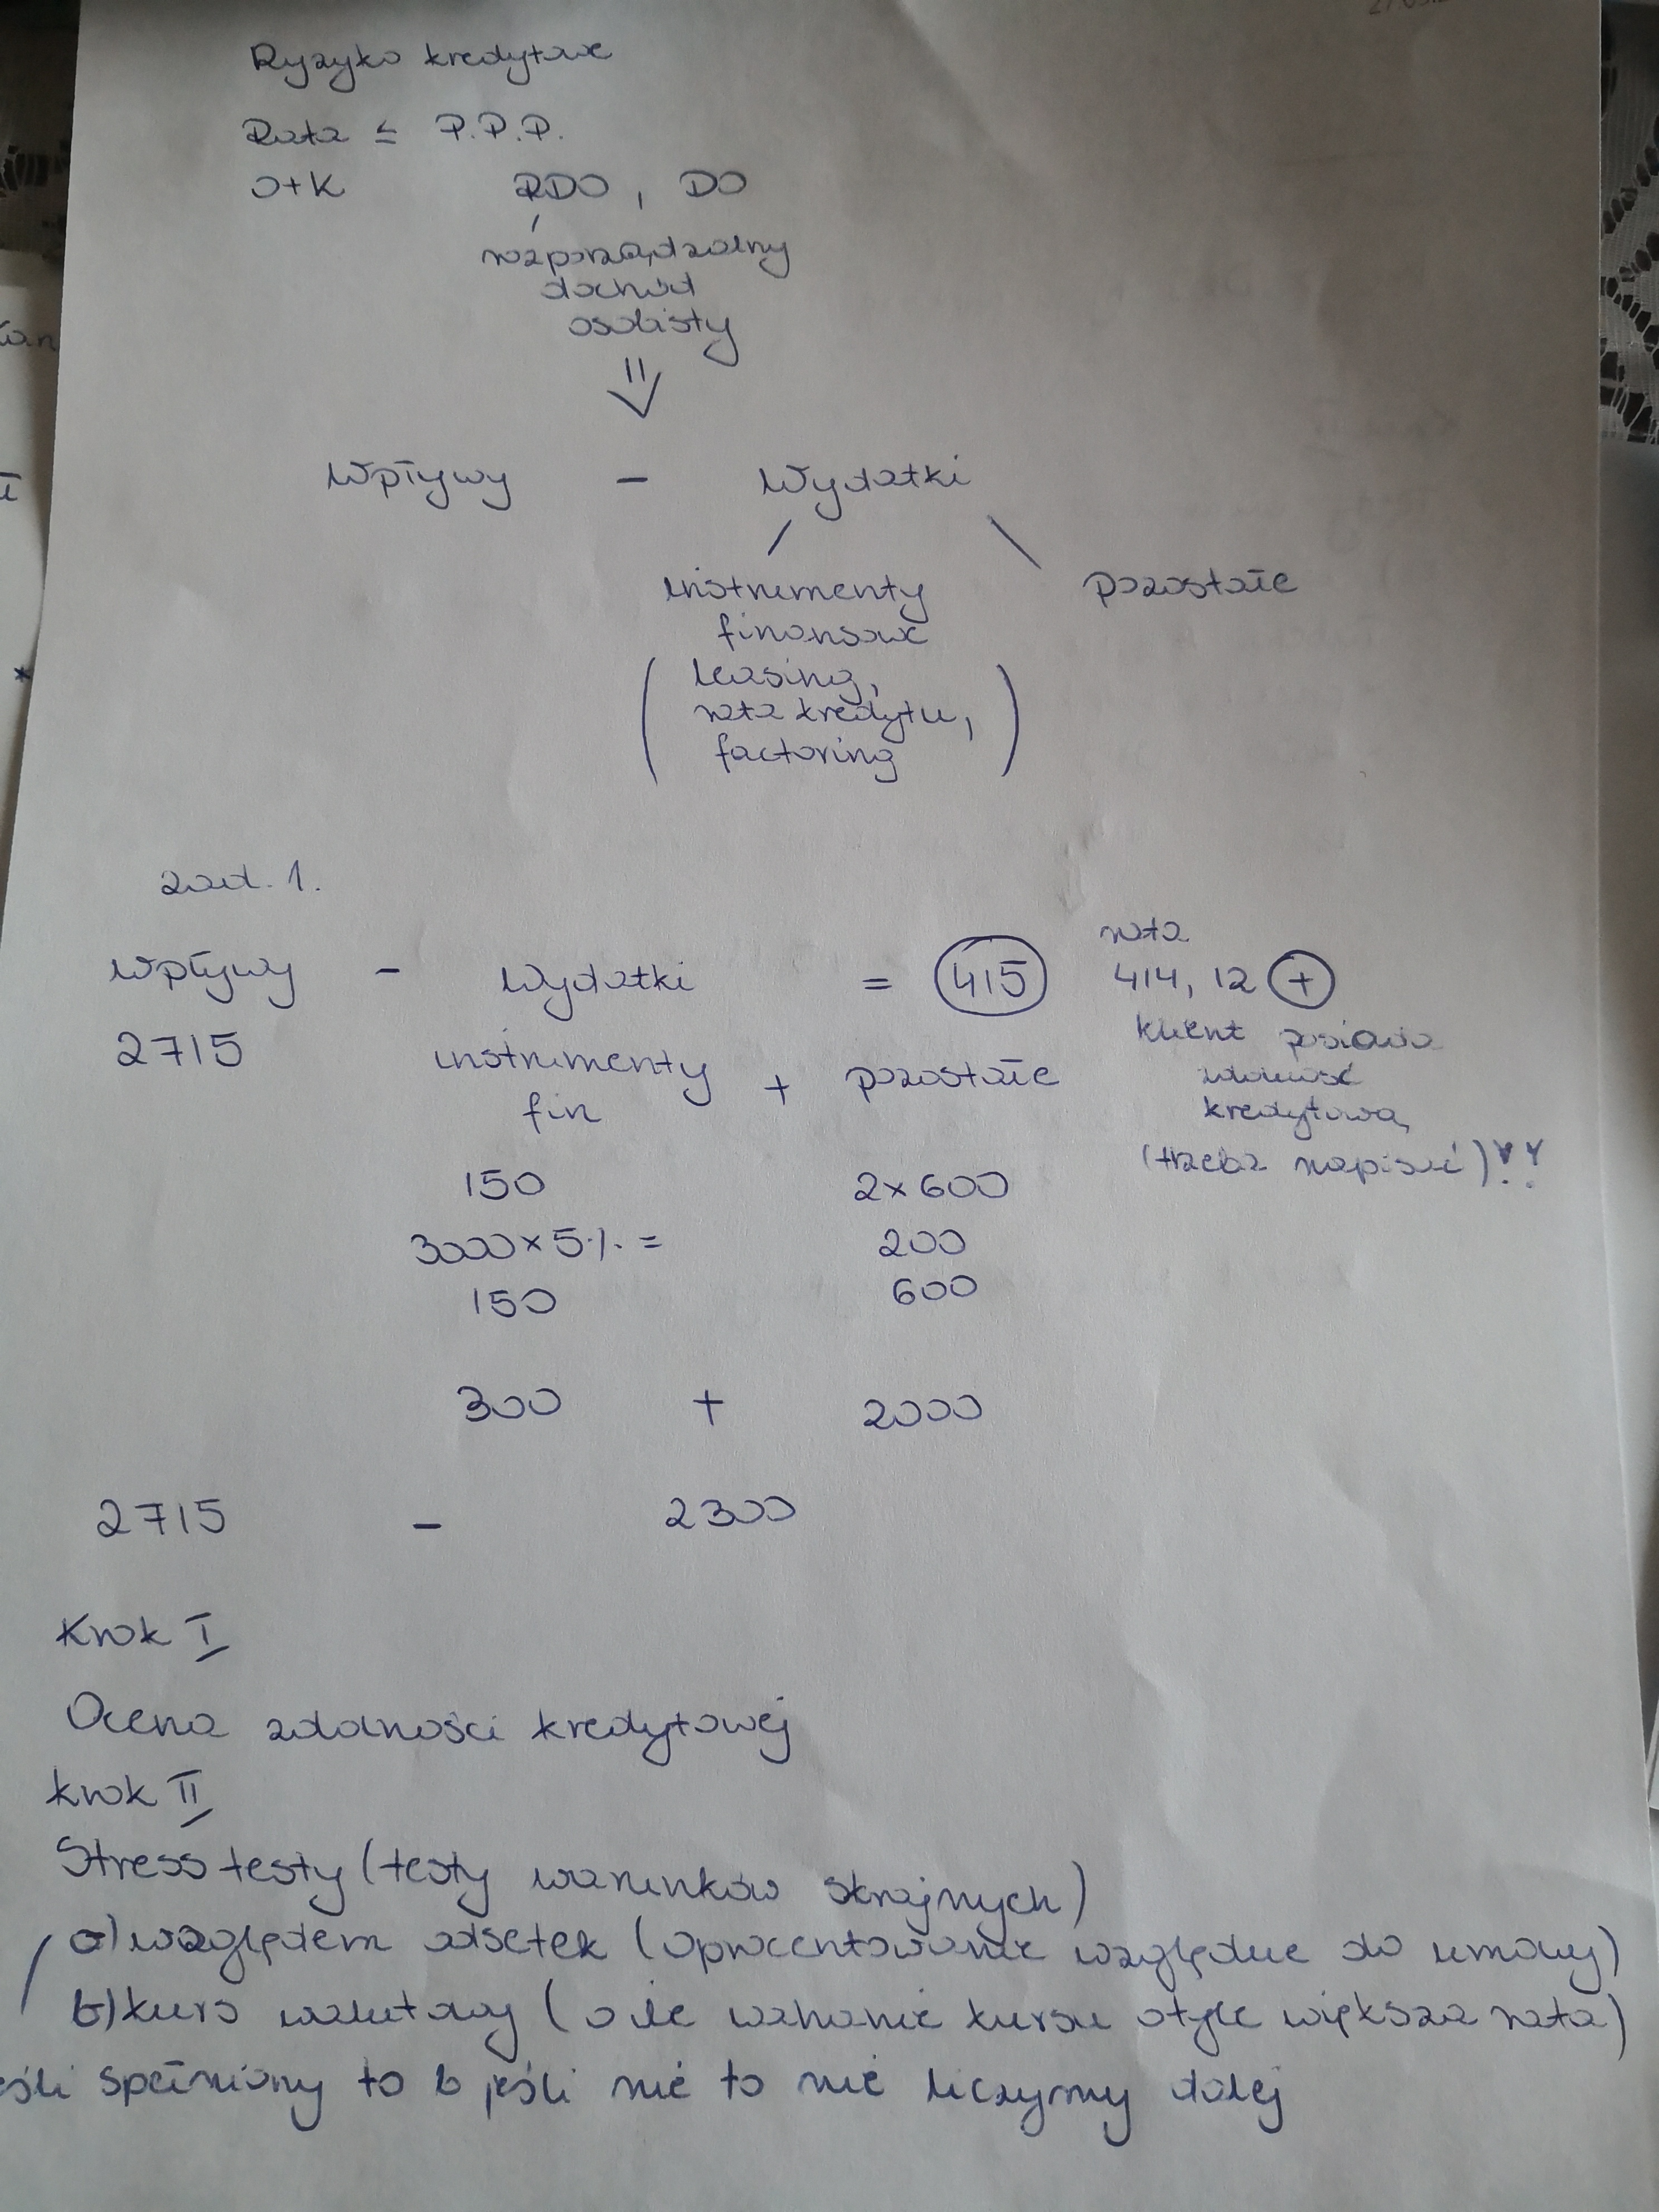 Ryzyko kredytowe
Rata ≤ P.P.P.
O+K RDO , DO
rozporządzalny
dochód
osobisty
Wpływy - Wydatki
instrumenty pozostałe
finansowe
( leasing,
rata kredytu,
factoring )
zad. 1.
rata
Wpływy - Wydatki = 415 414,12 +
2715 instrumenty + pozostałe
fin
klient posiada
zdolność
kredytową
(trzeba napisać)!!
150 2x600
3000x5% = 200
150 600
300 + 2000
2715 - 2300
Krok I
Ocena zdolności kredytowej
krok II
Stress testy (testy warunków skrajnych)
a) względem odsetek (oprocentowanie względne do umowy)
b) kurs walutowy (o ile wahanie kursu o tyle większa rata)
spełniony to b jeśli nie to nie liczymy dalej